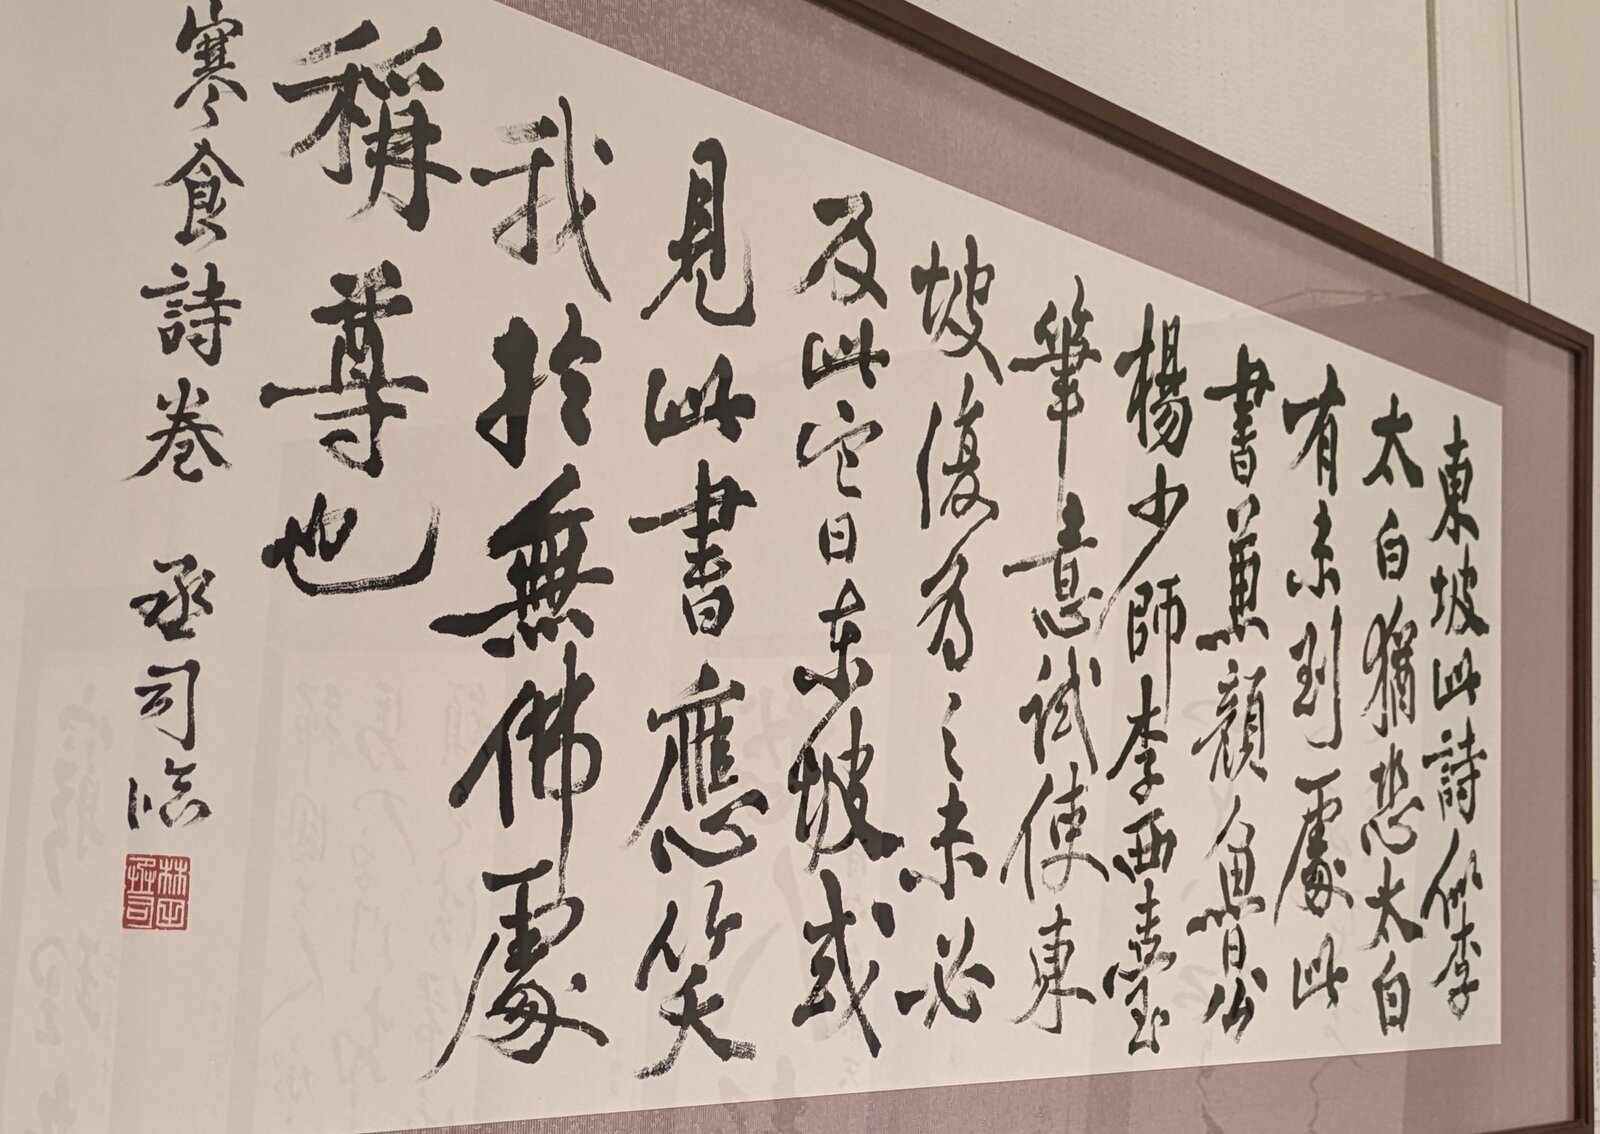 東坡此詩似李
太白猶恐太白
有未到處此
書兼顏魯公
楊少師李西臺
筆意試使東
坡復為之未必
及此它日東坡或
見此書應笑
我於無佛處
稱尊也
寒食詩卷 丞司臨